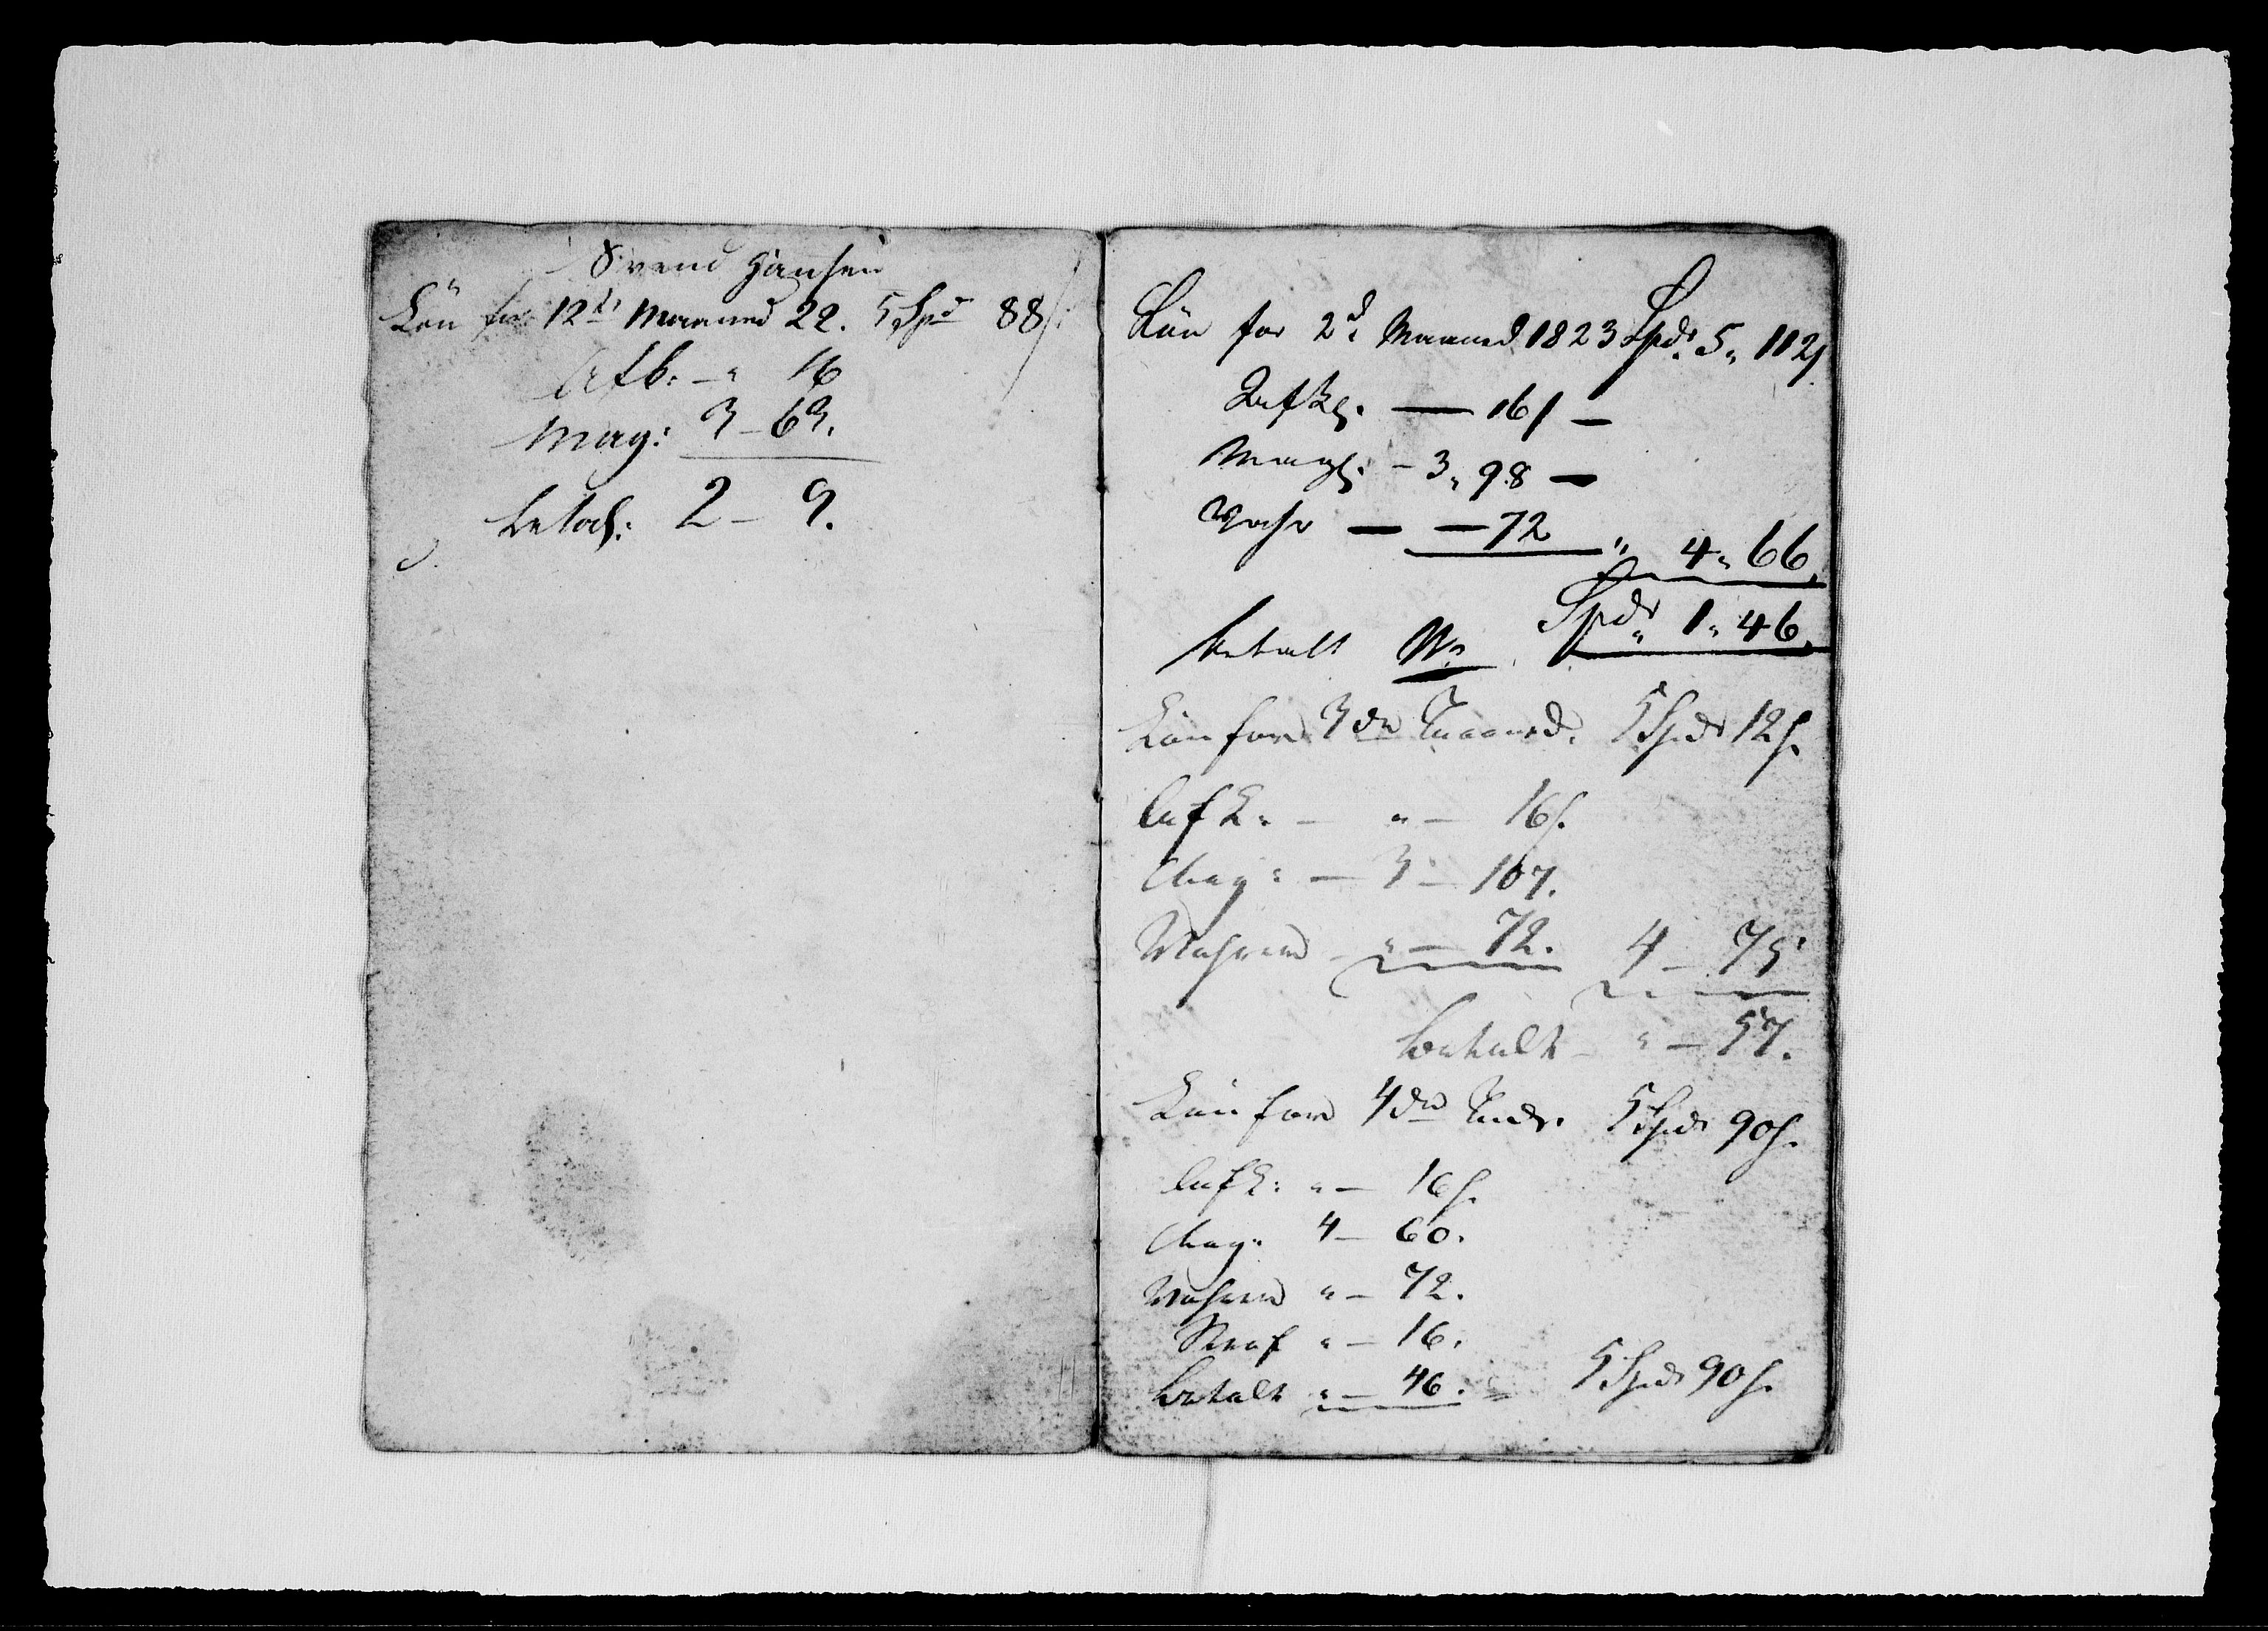 Svend Hansen
Løn for 12te Maaned 22. 5 Spd 88 /
Afb: - " 16
Mag: 3 - 63.
betalt: 2 - 9.
Løn for 2d Maaned 1823 Spdr 5 " 112 s
- 16 s -
Mag: - 3 " 98 -
- - 72 " 4 " 66,
Spdr " 1 " 46,
betalt
Løn for 3die Maaned. 5 Spdr 12 s.
- " - 16 s.
Mag: - 3 - 107.
" - 72. 4 - 75
betalt - " - 57.
Løn for 4de Mdr. 5 Spdr 90 s.
" - 16 s.
Mag: 4 - 60.
" - 72.
" - 16.
betalt " - 46. = 5 Spdr 90 s.